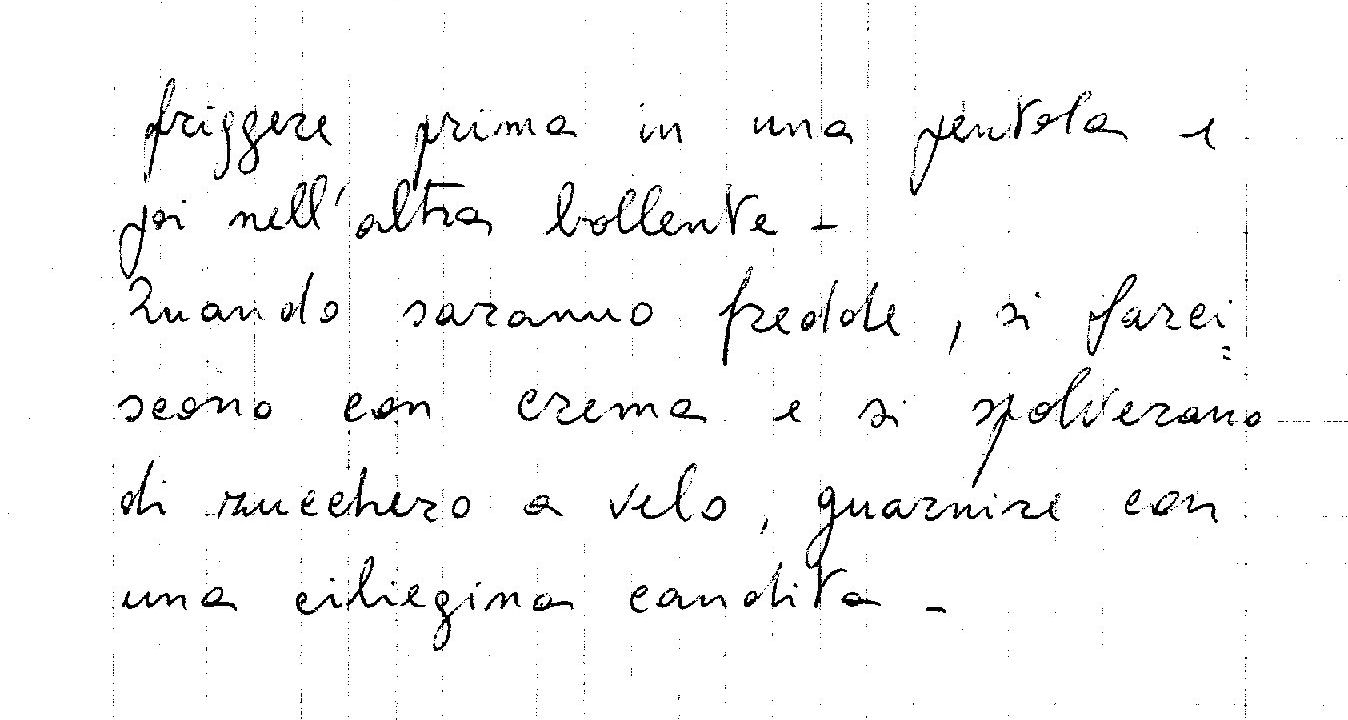 friggere prima in una pentola e
poi nell'altra bollente -
Quando saranno fredde, si farci=
scono con crema e si spolverano
di zucchero a velo, guarnire con
una ciliegina candita -